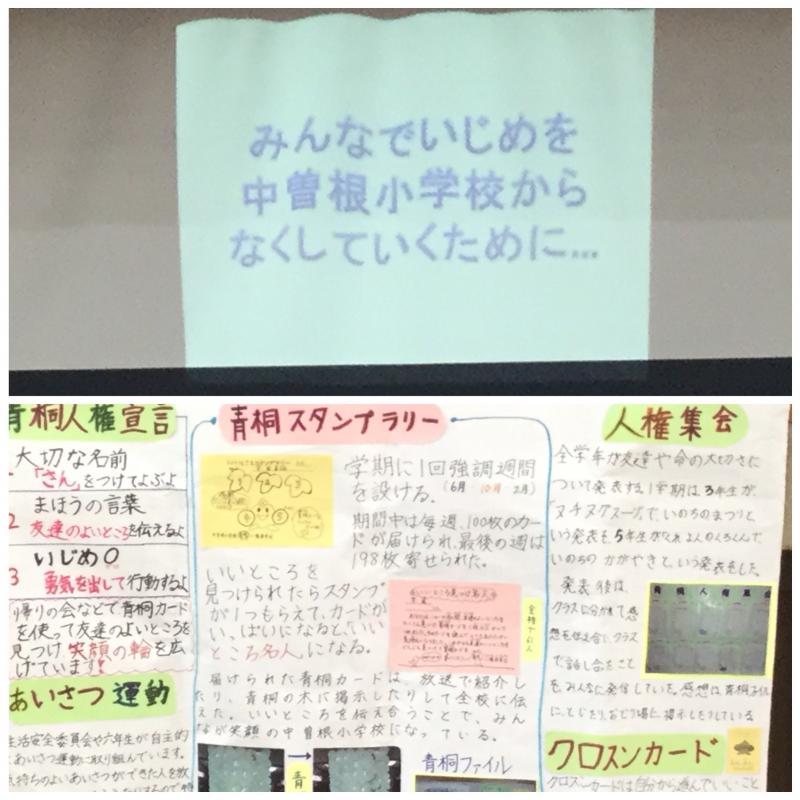 みんなでいじめを
中曽根小学校から
なくしていくために...
青桐人権宣言
大切な名前
「さん」をつけてよぶよ
まほうの言葉
2 友達のよいところを伝えるよ
いじめ0
3 勇気を出して行動するよ
帰りの会などで青桐カード
を使って友達のよいところを
見つけ笑顔の輪を広
げています!
あいさつ運動
生活安全委員会や六年生が自主的
にあいさつ運動に取り組んでいます。
気持ちのよいあいさつができた人を放
青桐スタンプラリー
学期に1回強調週間
を設ける。(6月 10月 2月)
期間中は毎週、100枚のカー
ドが届けられ、最後の週は
198枚寄せられた。
いいところを
見つけられたらスタンプ
が1つもらえて、カードが
いっぱいになると、「いい
ところ名人」になる。
届けられた青桐カードは、放送で紹介し
たり、青桐の木に掲示したりして全校に伝
えた。いいところを伝え合うことで、みん
なが笑顔の中曽根小学校になっている。
青
青桐ファイル
人権集会
全学年が友達や命の大切さに
ついて発表する。1学期は3年生が、
「ヌチヌグスージ」で、いのちのまつりと
いう発表を5年生が
いのちのかがやきという発表をした。
発表後は、
クラスに分かれて感
想を伝え合い、クラス
で話し合ったことを
みんなに発信していた。感想は、青桐ファイル
にとじたり、おどり場に掲示したりしている。
クロスンカード
クロスンカードは自分から進んでいいこと